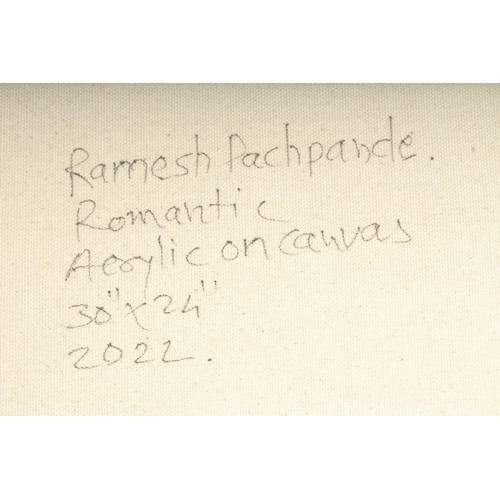 Ramesh Pachpande.
Romantic
Acrylic on canvas
30"x24"
2022.